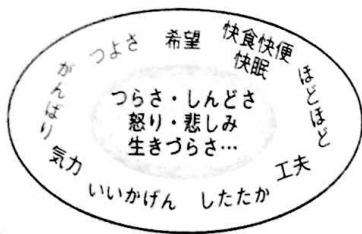 つよさ
希望
快食快便
快眠
ほどほど
工夫
したたか
いいかげん
気力
がんばり
つらさ・しんどさ
怒り・悲しみ
生きづらさ…